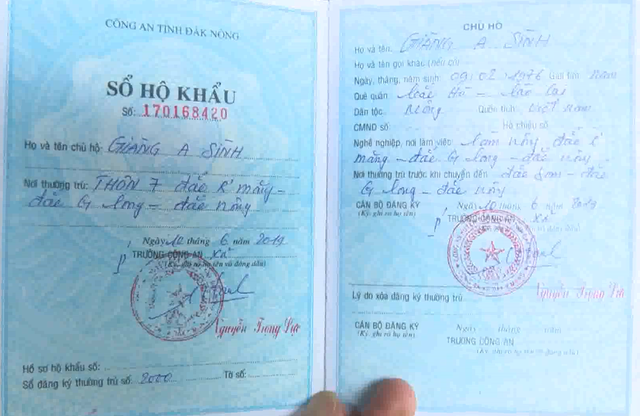 CÔNG AN TỈNH ĐẮK NÔNG
SỔ HỘ KHẨU
Số: 170168420
Họ và tên chủ hộ: GIÀNG A SÌNH
Nơi thường trú: THÔN 7 đắk R'măng-
đắk G long - đắk nông
Ngày 10 tháng 6 năm 2019
TRƯỞNG CÔNG AN xã
(Ký, ghi rõ họ tên và đóng dấu)
Nguyễn Trọng
Hồ sơ hộ khẩu số:
Sổ đăng ký thường trú số: 2000 Tờ số:
CHỦ HỘ
Họ và tên: GIÀNG A SÌNH
Họ và tên gọi khác (nếu có):
Ngày, tháng, năm sinh: 09.02.1976 Giới tính: Nam
Quê quán: Hà - Lào Cai
Dân tộc: Mông Quốc tịch: Việt Nam
CMND số: Hộ chiếu số:
Nghề nghiệp, nơi làm việc: Làm nông đắk R'
măng - đắk G long - đắk nông
Nơi thường trú trước khi chuyển đến: đắk Som - đắk
G long - đắk nông
Ngày 10 tháng 6 năm 2019
CÁN BỘ ĐĂNG KÝ TRƯỞNG CÔNG AN xã
(Ký, ghi rõ họ tên)
Lý do xóa đăng ký thường trú:
Nguyễn Trọng
CÁN BỘ ĐĂNG KÝ Ngày tháng năm
(Ký, ghi rõ họ tên) TRƯỞNG CÔNG AN
(Ký, ghi rõ họ tên và đóng dấu)